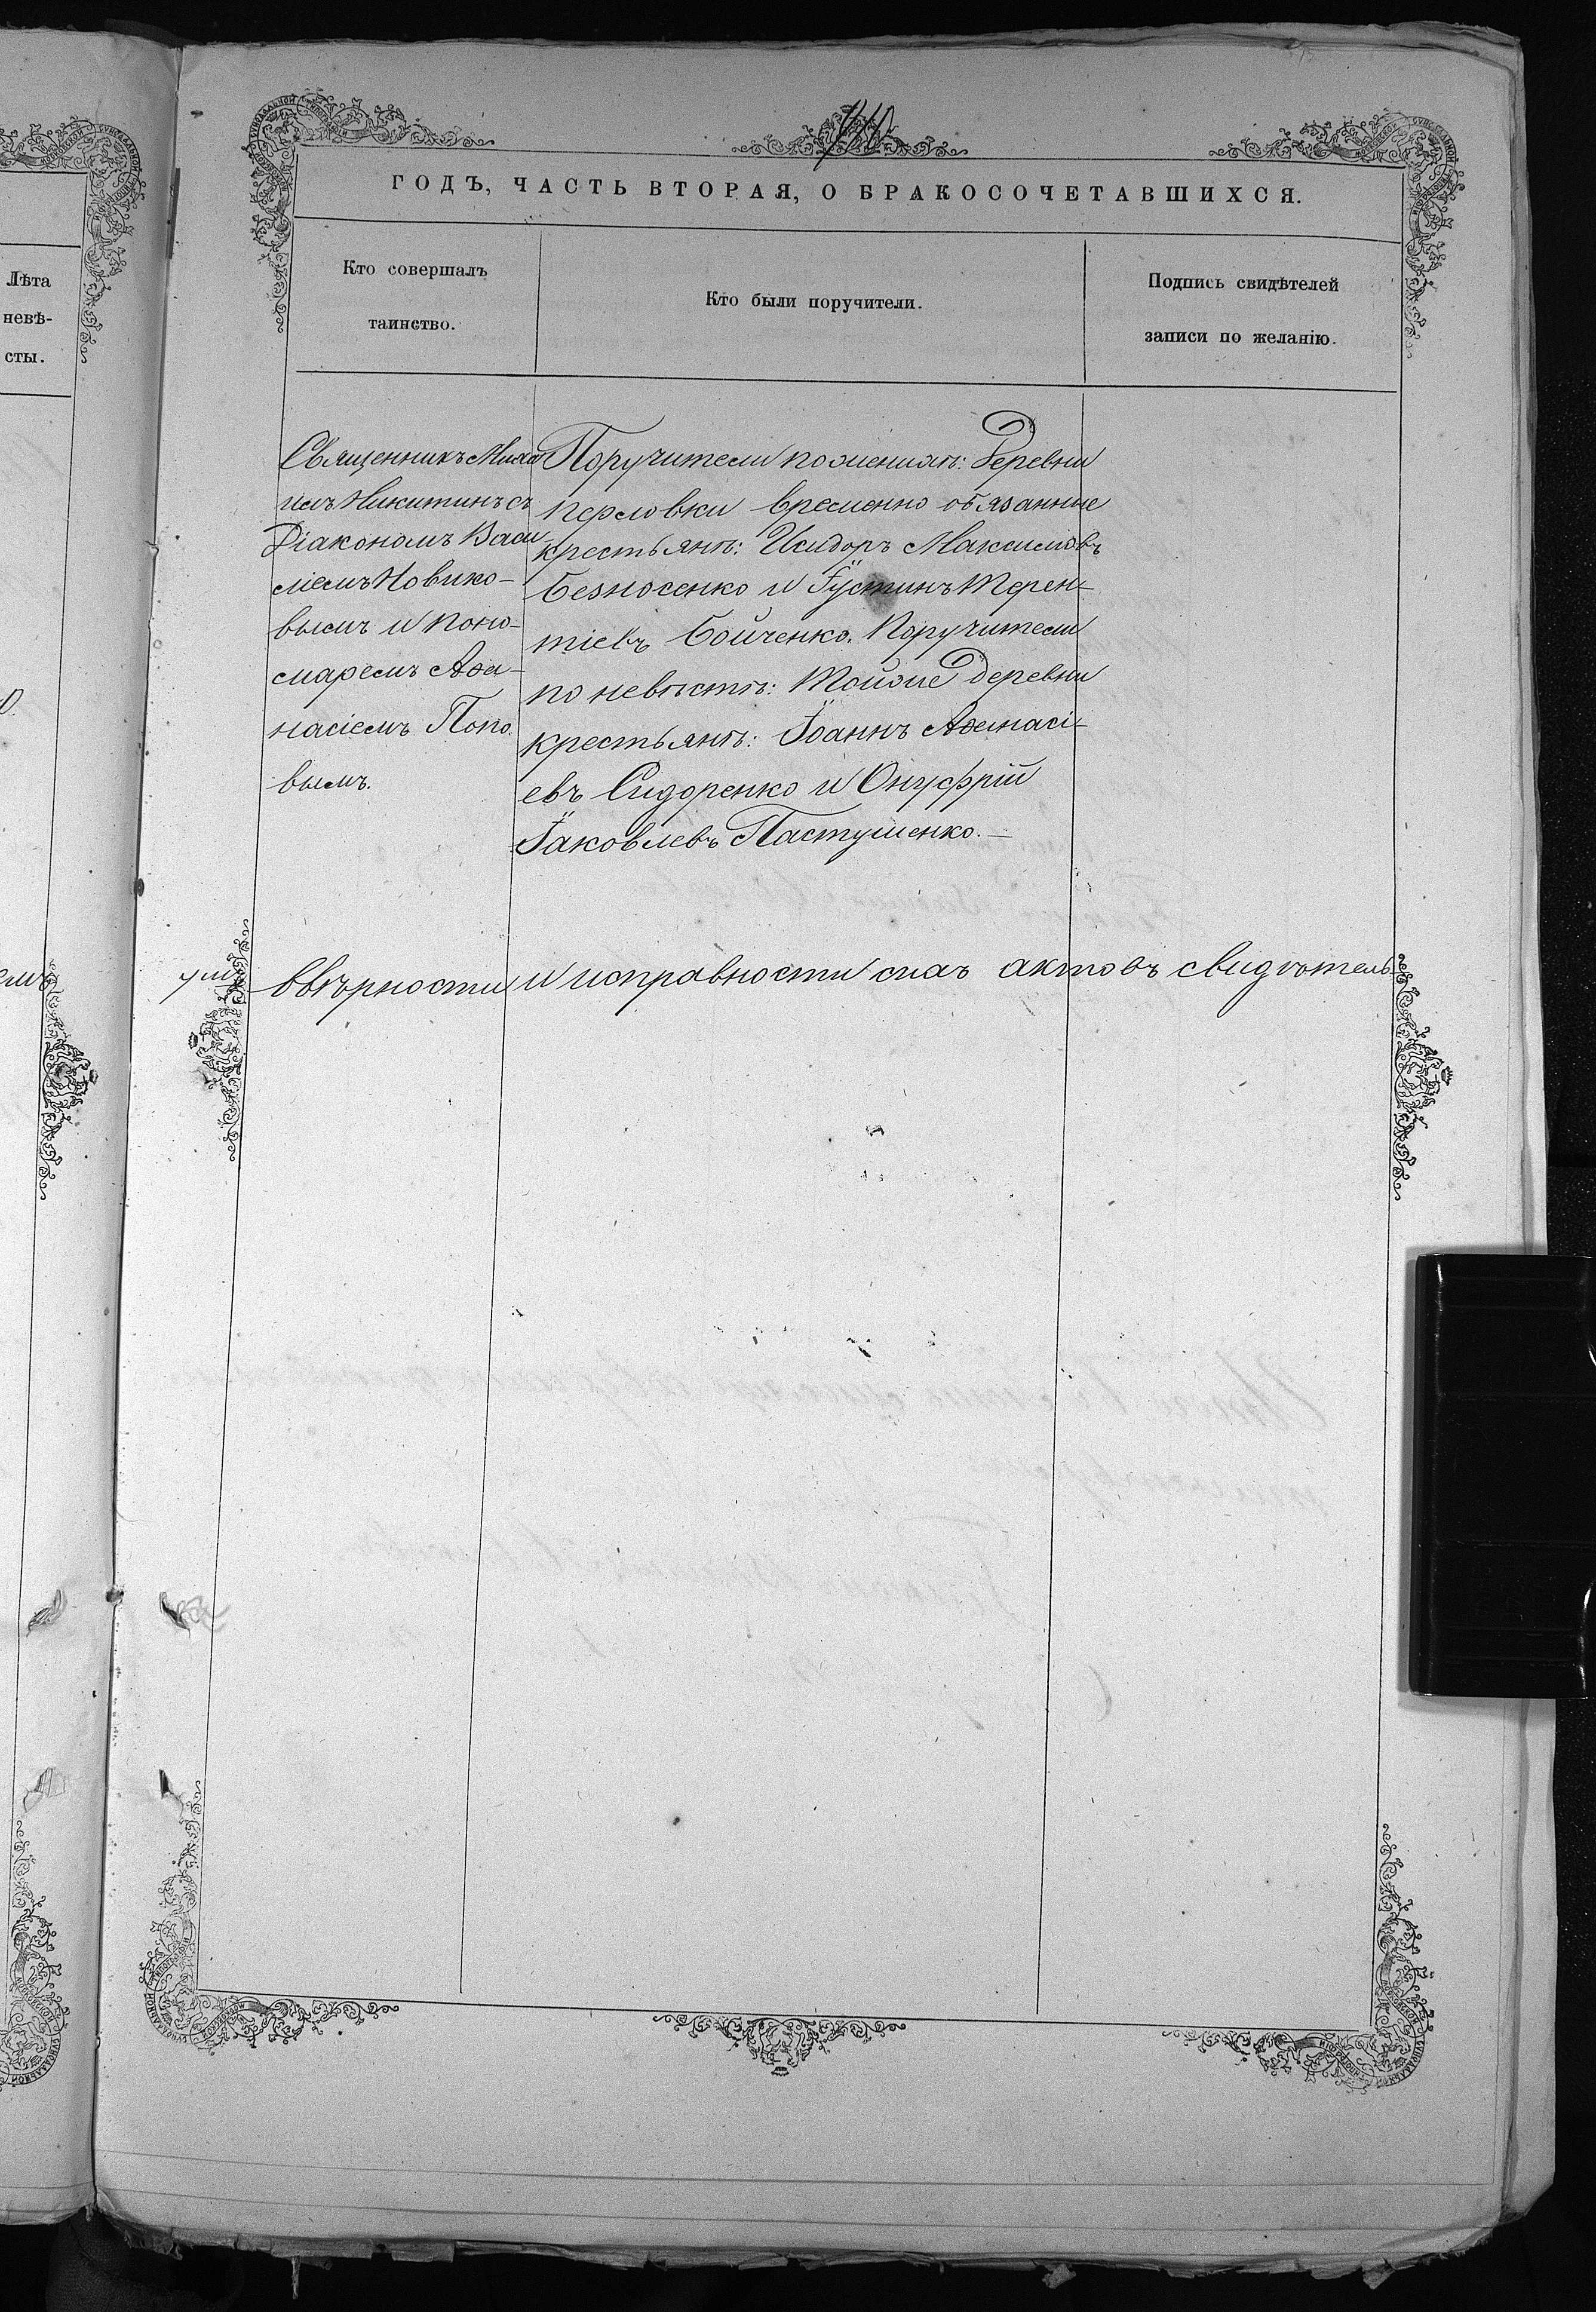 ГОДЪ, ЧАСТЬ ВТОРАЯ, О БРАКОСОЧЕТАВШИХСЯ.
Лѣта
невѣ-
сты.
Кто совершалъ
таинство.
Кто были поручители.
Подпись свидѣтелей
записи по желанію.
Священникъ Миха
илъ Никитинъ съ
Діакономъ Васи-
ліемъ Новико-
вымъ и поно-
маремъ Аѳа-
насіемъ Попо-
вымъ.
Поручители по женихѣ: Деревни
Перловки временно обязанные
крестьянѣ: Исидоръ Максимовъ
Безносенко и Іустинъ Терен-
тіевъ Бойченко. Поручители
по невѣстѣ: Тойже деревни
крестьянѣ: Іоаннъ Аѳанасі-
евъ Сидоренко и Онуфрій
Іаковлевъ Пастушенко.—
ввѣрности и исправности сихъ актовъ свидѣтель-